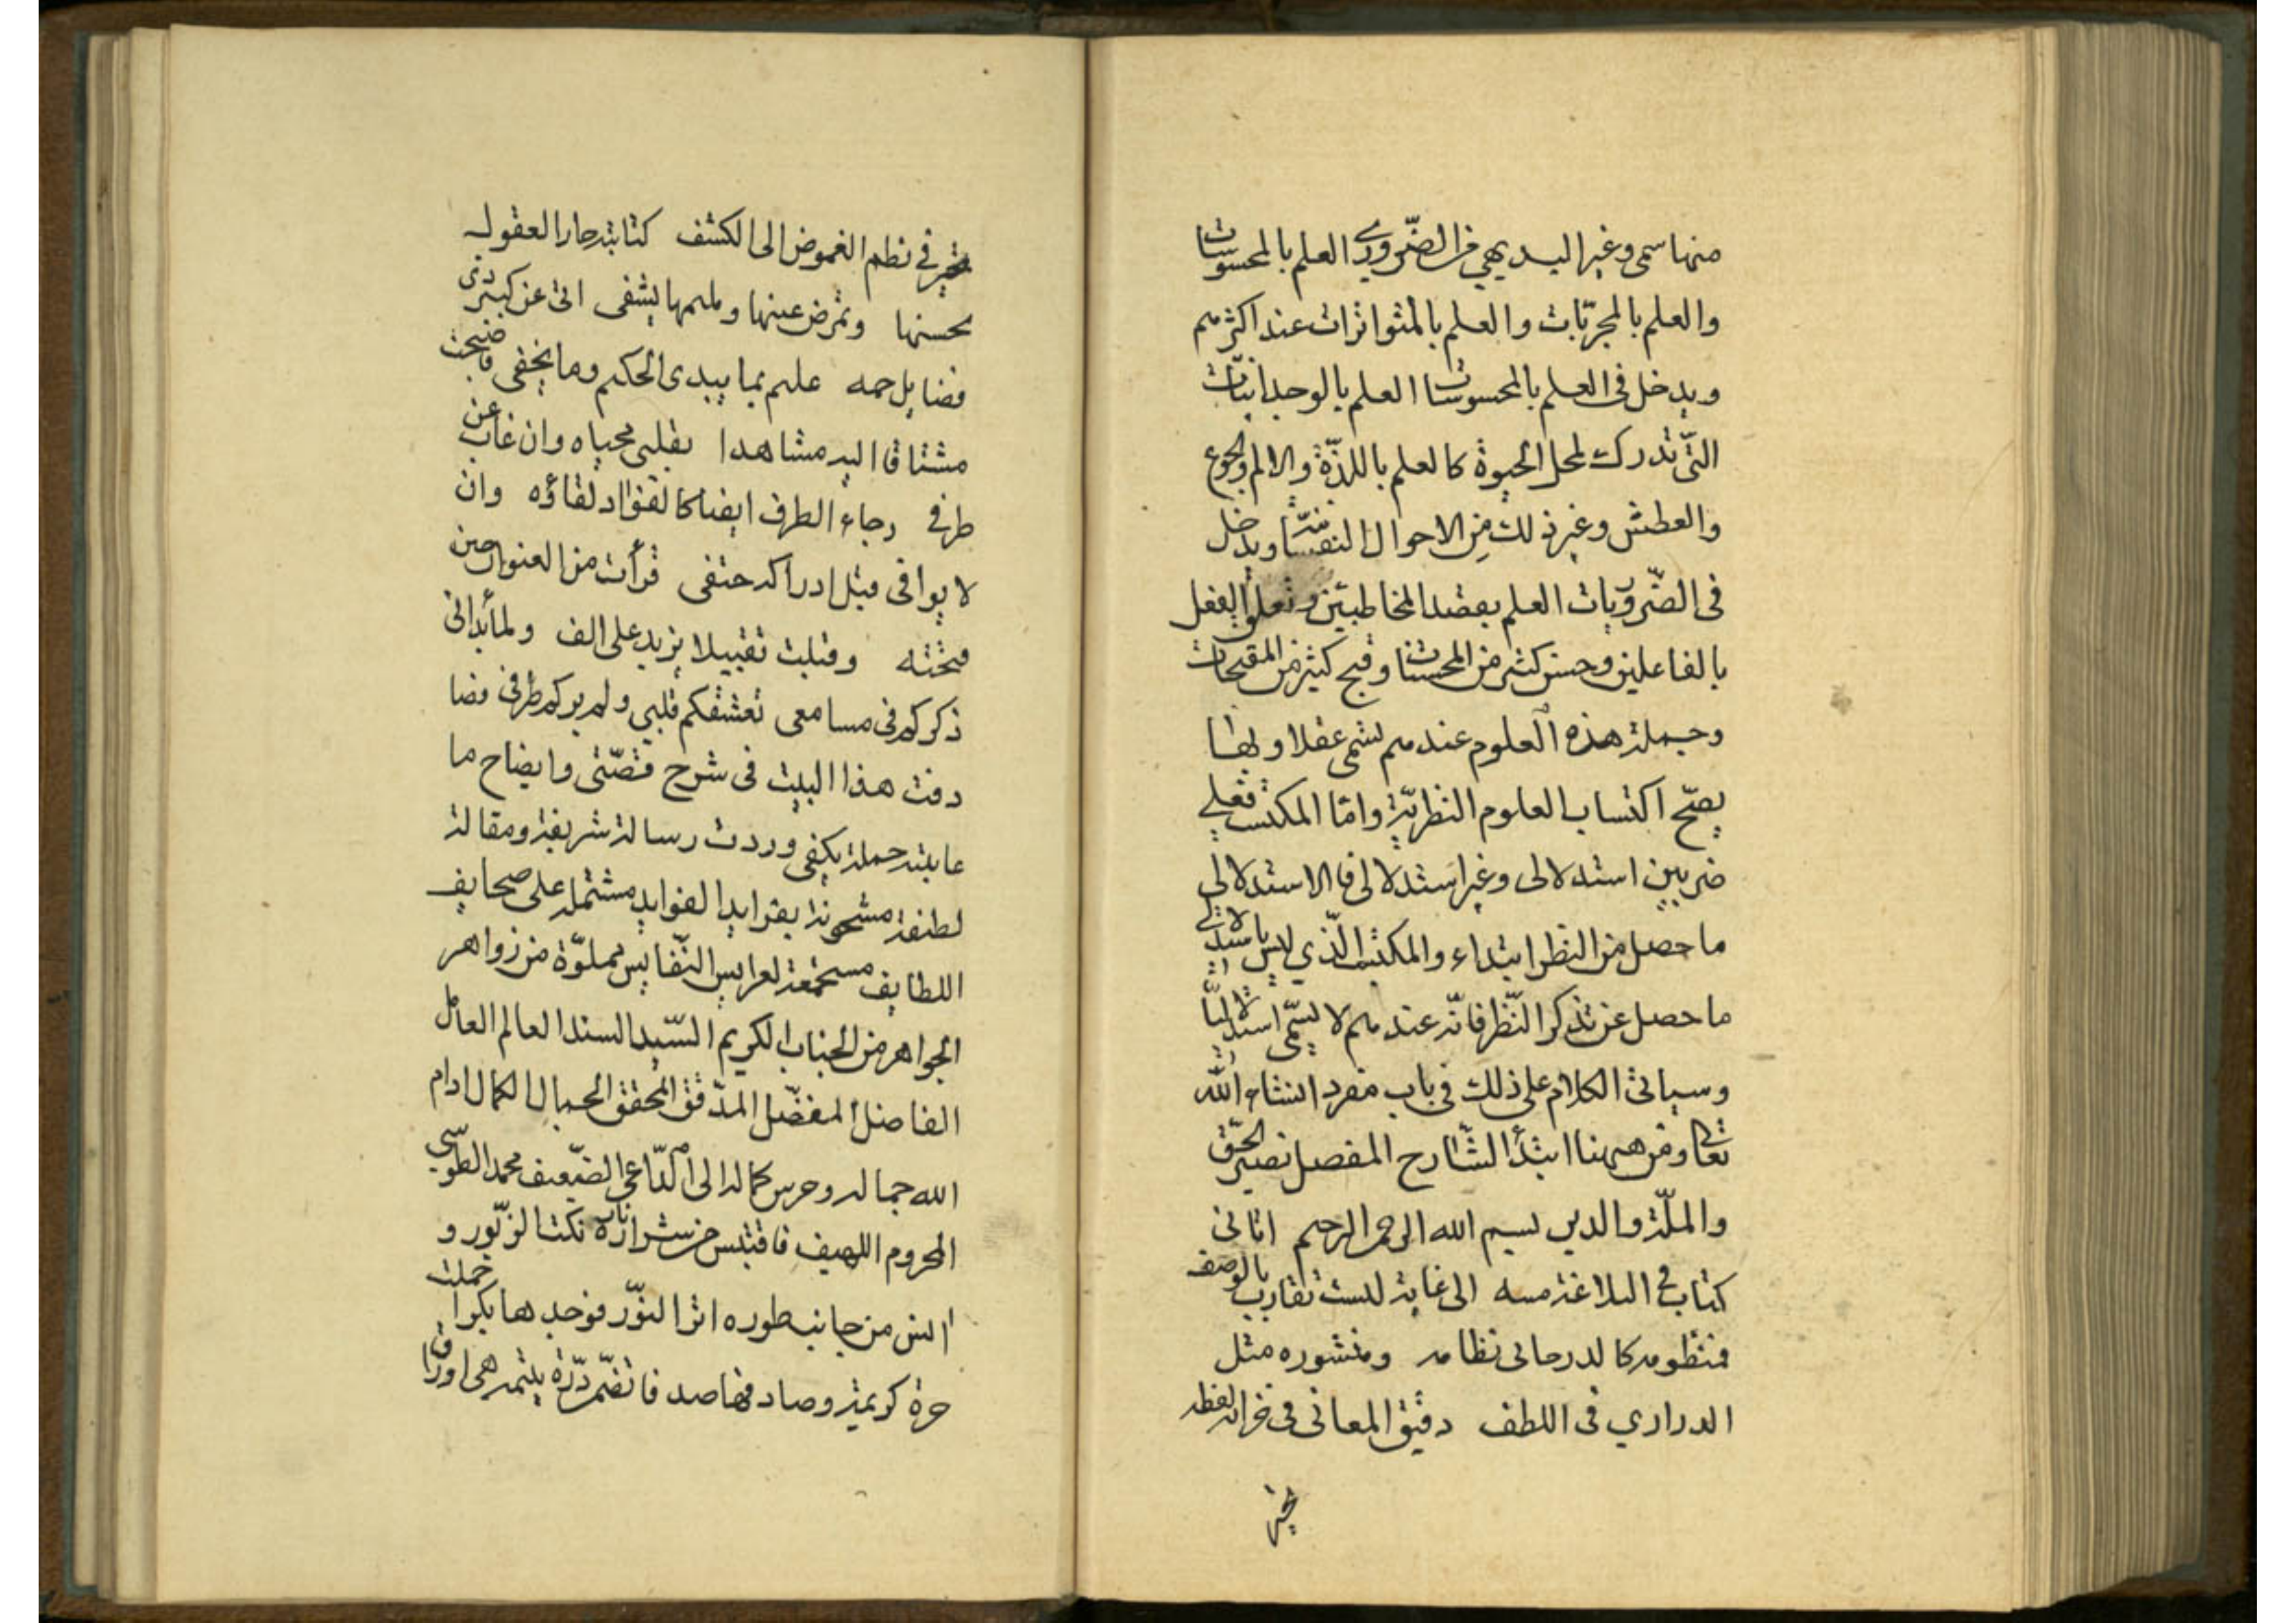 منها سمى وغير البديهي من الضّروري العلم بالمحسوسات
والعلم بالمجرّبات والعلم بالمتواترات عند اكثرهم
ويدخل فى العلم بالمحسوسات العلم بالوجدانيّات
التّى تدرك لمحل الحيوة كالعلم باللذّة والالم والجوع
والعطش وغير ذلك من الاحوال النفسيّة ويدخل
فى الضّروريات العلم بقصد المخاطبين وتعلق الفعل
بالفاعلين وحسن كثير من المحسنات وقبح كثير من المقبحات
وجملة هذه العلوم عندهم تسمى عقلا وبها
يصحّ اكتساب العلوم النظريّة وامّا المكتسب فعلى
ضربين استدلالى وغير استدلالى فالاستدلالي
ما حصل من النظر ابتداء والمكتسب الّذي ليس باستدلالي
ما حصل عن تذكر النّظر فانّه عندهم لا يسمّى استدلاليّا
وسيأتى الكلام على ذلك فى باب مفرد انشاء الله
تعالى ومن ههنا ابتدأ الشّارح المفصل نصير الحقّ
والملّة والدين بسم الله الرحمن الرحيم اتانى
كتاب في البلاغة منته الى غاية ليست تقارب بالوصف
فمنظومه كالدر جاني نظامه ومنثوره مثل
الدراري فى اللطف دقيق المعانى فى جزالة لفظه
تحير في نظم الغموض الى الكشف كتابته حار العقول
بحسنها وتمرض عينها وملثمها يشفى اتى عن كبير ذي
فضايل جمه عليم بما يبدى الحكيم وما يخفى فاصبحت
مشتاقا اليه مشاهدا بقلبى محياه وان غاب عن
طرفي رجاء الطرف ايضا كالفؤاد لقاؤه وان
لا يوافى قبل ادراكه حتفى قرأت من العنوان حين
فتحته وقبلت تقبيلا يزيد على الف ولما بدا لى
ذكركم فى مسامعى تعشقكم قلبي ولم يركم طرفى فصا
دفت هذا البيت فى شرح قصّتى وايضاح ما
عاينته جملة يكفى وردت رسالة شريفة ومقالة
لطيفة مشحونة بفرايد الفوايد مشتملة على صحايف
اللطايف مستجمعة لعرايس النّفايس مملوّة من زواهر
الجواهر من الجناب الكريم السّيد السند العالم العامل
الفاضل المفضّل المدّقق المحقق الجمال الكمال ادام
الله جماله وحرس كماله الى الدّاعي الضّعيف محمد الطّوسي
المحروم اللهيف فاقتبس من شرارة ناره نكتا لزبّور و
انس من جانب طوره اثر النوّر فوجدها بكرا حملت
حرة كريمة وصادفها صدفا تضمّ درّة يتيمة هى اوراق